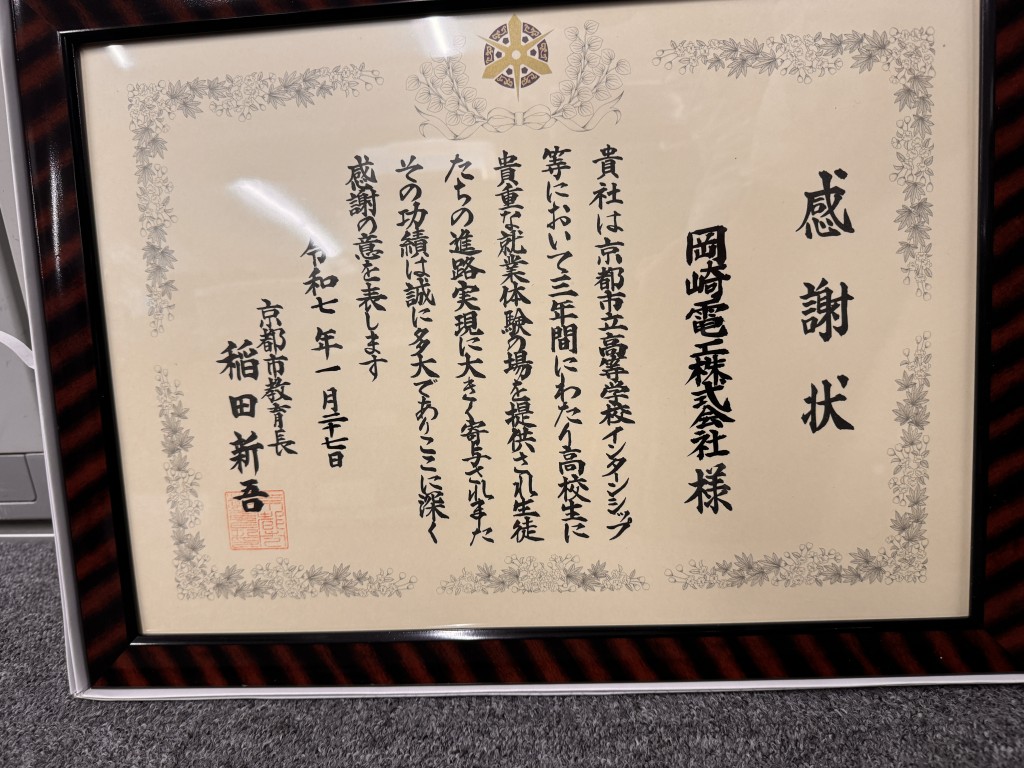 感謝状
岡崎電工株式会社 様
貴社は京都市立高等学校インターンシップ
等において三年間にわたり高校生に
貴重な就業体験の場を提供され生徒
たちの進路実現に大きく寄与されました
その功績は誠に多大でありここに深く
感謝の意を表します
令和七年一月二十七日
京都市教育長
稲田新吾